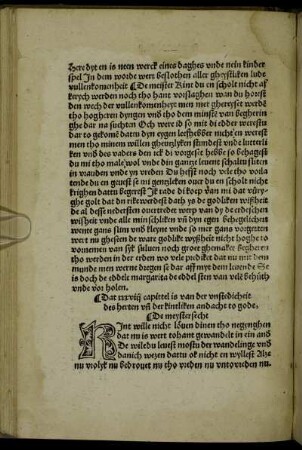 Here dyt en is neen werck eines daghes vnde nein kinder
spel In dem worde wert beslothen aller gheystliken lude
vullenkomenheit De meister Kint du en scholt nicht af
kerych werden noch tho hant vorslaghen wan du horest
den wech der vullenkomenheyt men
tho hogheren dyngen vnd tho dem
ghe dar na suchten Och were id so mit di edder werestu
dar to gekomē datu dyn eygen leefhebber nicht en werest
men tho minem willen stundest vnde
vnd des vaders den ick di vorgesat hebbe so behagestu
du mi tho male wol vnde din gantze leuent scholde sliten
in vrauden vnde yn vreden Du hefst noch vele tho
tende du en geuest se mi gensliken ouer du en scholt nicht
krighen datu begerest Ick rade di koep van mi dat
ghe golt dat du rike werdest dath ys de godliken wißheit
de al desse nedersten
wißheit vnde alle minschliken vn̄ dyn egen behegelicheit
wente gans slim vn̄ kleyne vnde so mer gans vorgetten
wert nu ghesten de ware godlike wyßheit nicht hoghe to
vornemen van syk sůluen noch groet ghemaket begheren
tho werden in der erden wo vele prediket dat nu mit dem
munde men werne dregen se dar aff myt dem leuende Se
is doch de eddele margarita de eddel sten van vele behůth
vnde vorholen.
Dat xxxviij capittel is van der vnstedicheit
des herten vn̄ der entliken andacht to gode.
De meyster secht
KInt wille nicht lôuen dinen tho neghenghen
dat nu is wert tohant gewandelt in ein and
De wile du leuest mostu der wandelinge vnd
danich wezen datu ok nicht en wyllest Alze
nu vrolyk nu bedrouet nu tho vreden nu vntovreden nu